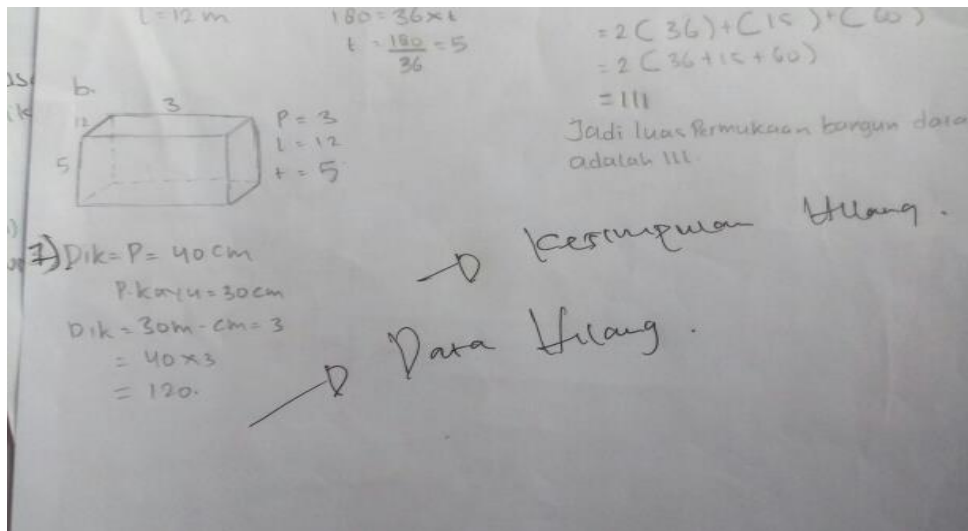 L = 12 m
180 = 36 x t
t = 180/36 = 5
= 2 ( 36 ) + ( 15 ) + ( 60 )
= 2 ( 36 + 15 + 60 )
= 111
Jadi luas Permukaan bangun data
adalah 111.
b.
12
3
5
P = 3
L = 12
t = 5
7) Dik = P = 40 cm
P. kayu = 30 cm
Dik = 30 m - cm = 3
= 40 x 3
= 120.
Kesimpulan Hilang.
Data Hilang.